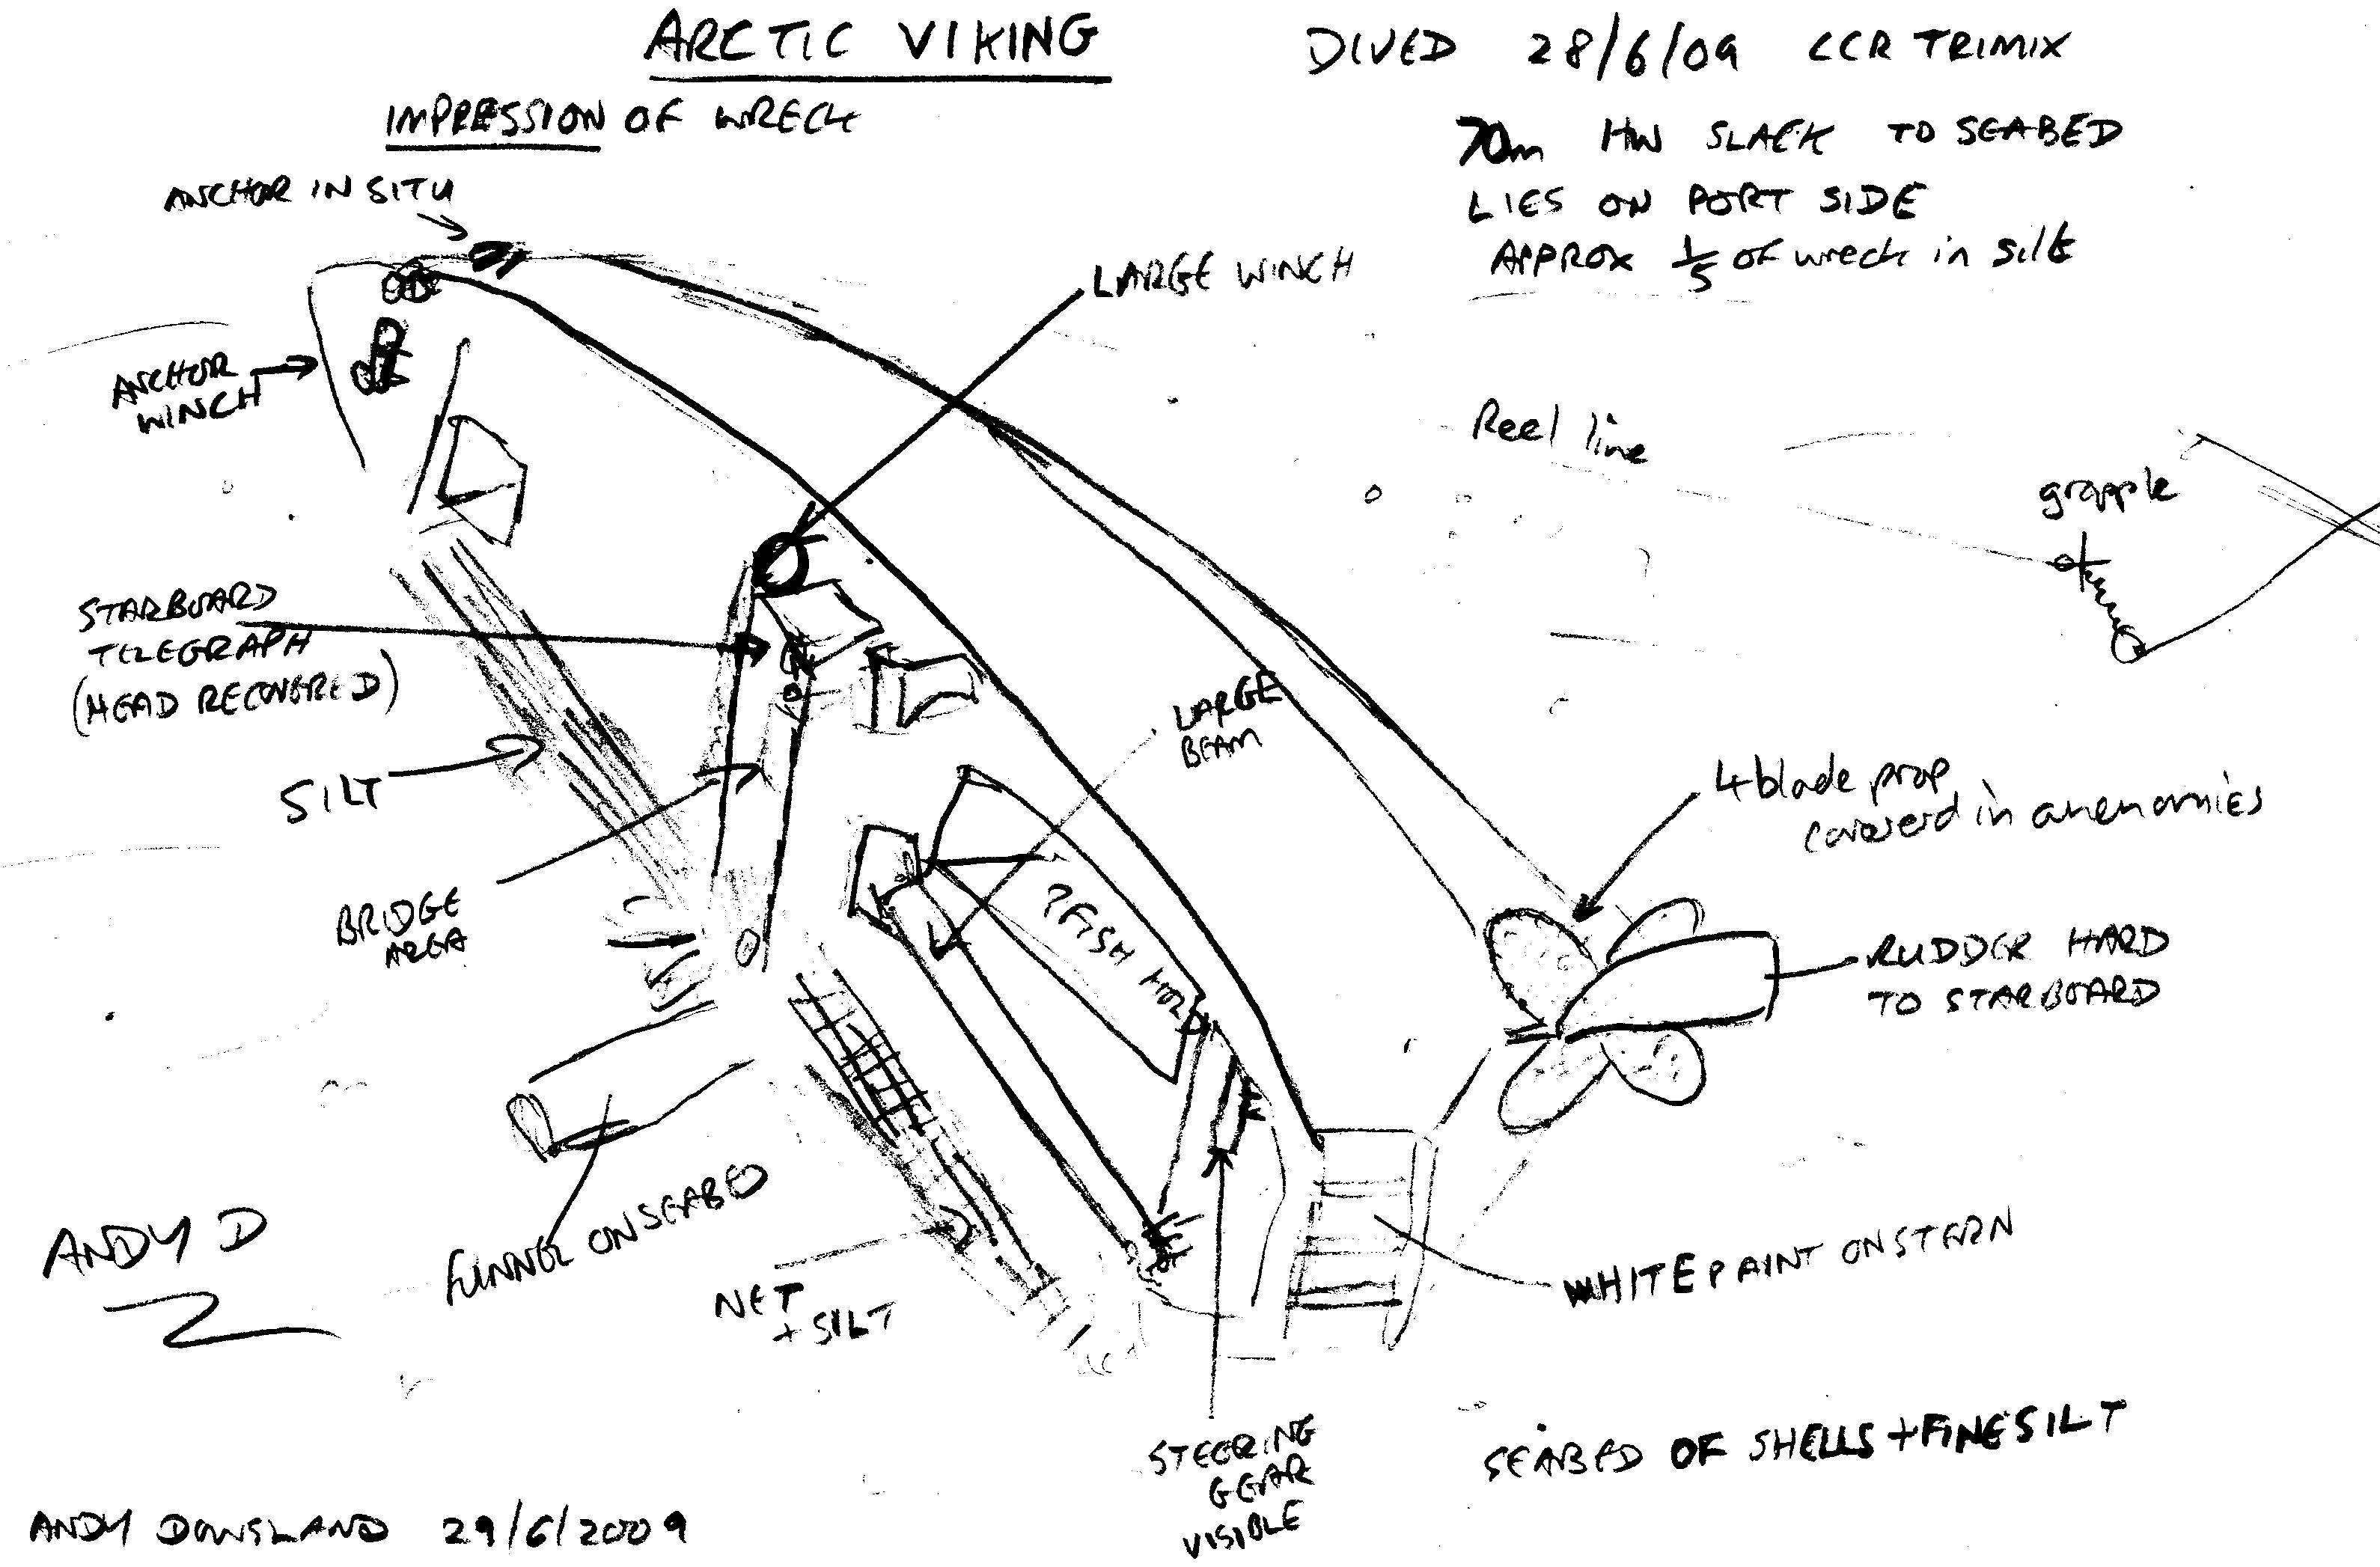 ARCTIC VIKING
DIVED 28/6/09 CCR TRIMIX
IMPRESSION OF WRECK
70m HW SLACK TO SEABED
LIES ON PORT SIDE
APPROX 1/5 of wreck in silt
ANCHOR IN SITU
LARGE WINCH
ANCHOR
WINCH
Reel line
grapple
STARBOARD
TELEGRAPH
(HEAD RECOVERED)
LARGE
BEAM
SILT
4 blade prop
covererd in anenomies
BRIDGE
AREA
?FISH HOLD
RUDDER HARD
TO STARBOARD
FUNNEL ON SEABED
NET
+ SILT
WHITE PAINT ON STERN
STEERING
GEAR
VISIBLE
SEABED OF SHELLS + FINE SILT
ANDY D
ANDY DOWSLAND 29/6/2009